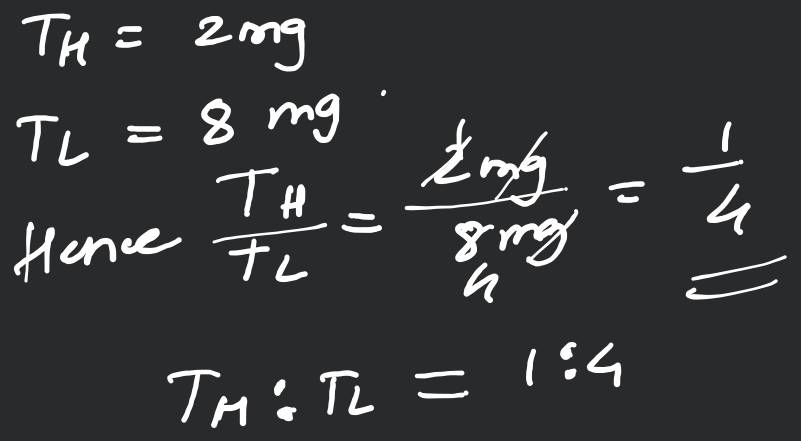 TH = 2mg
TL = 8 mg
Hence TH/TL = 2mg/8mg = 1/4
TH : TL = 1:4